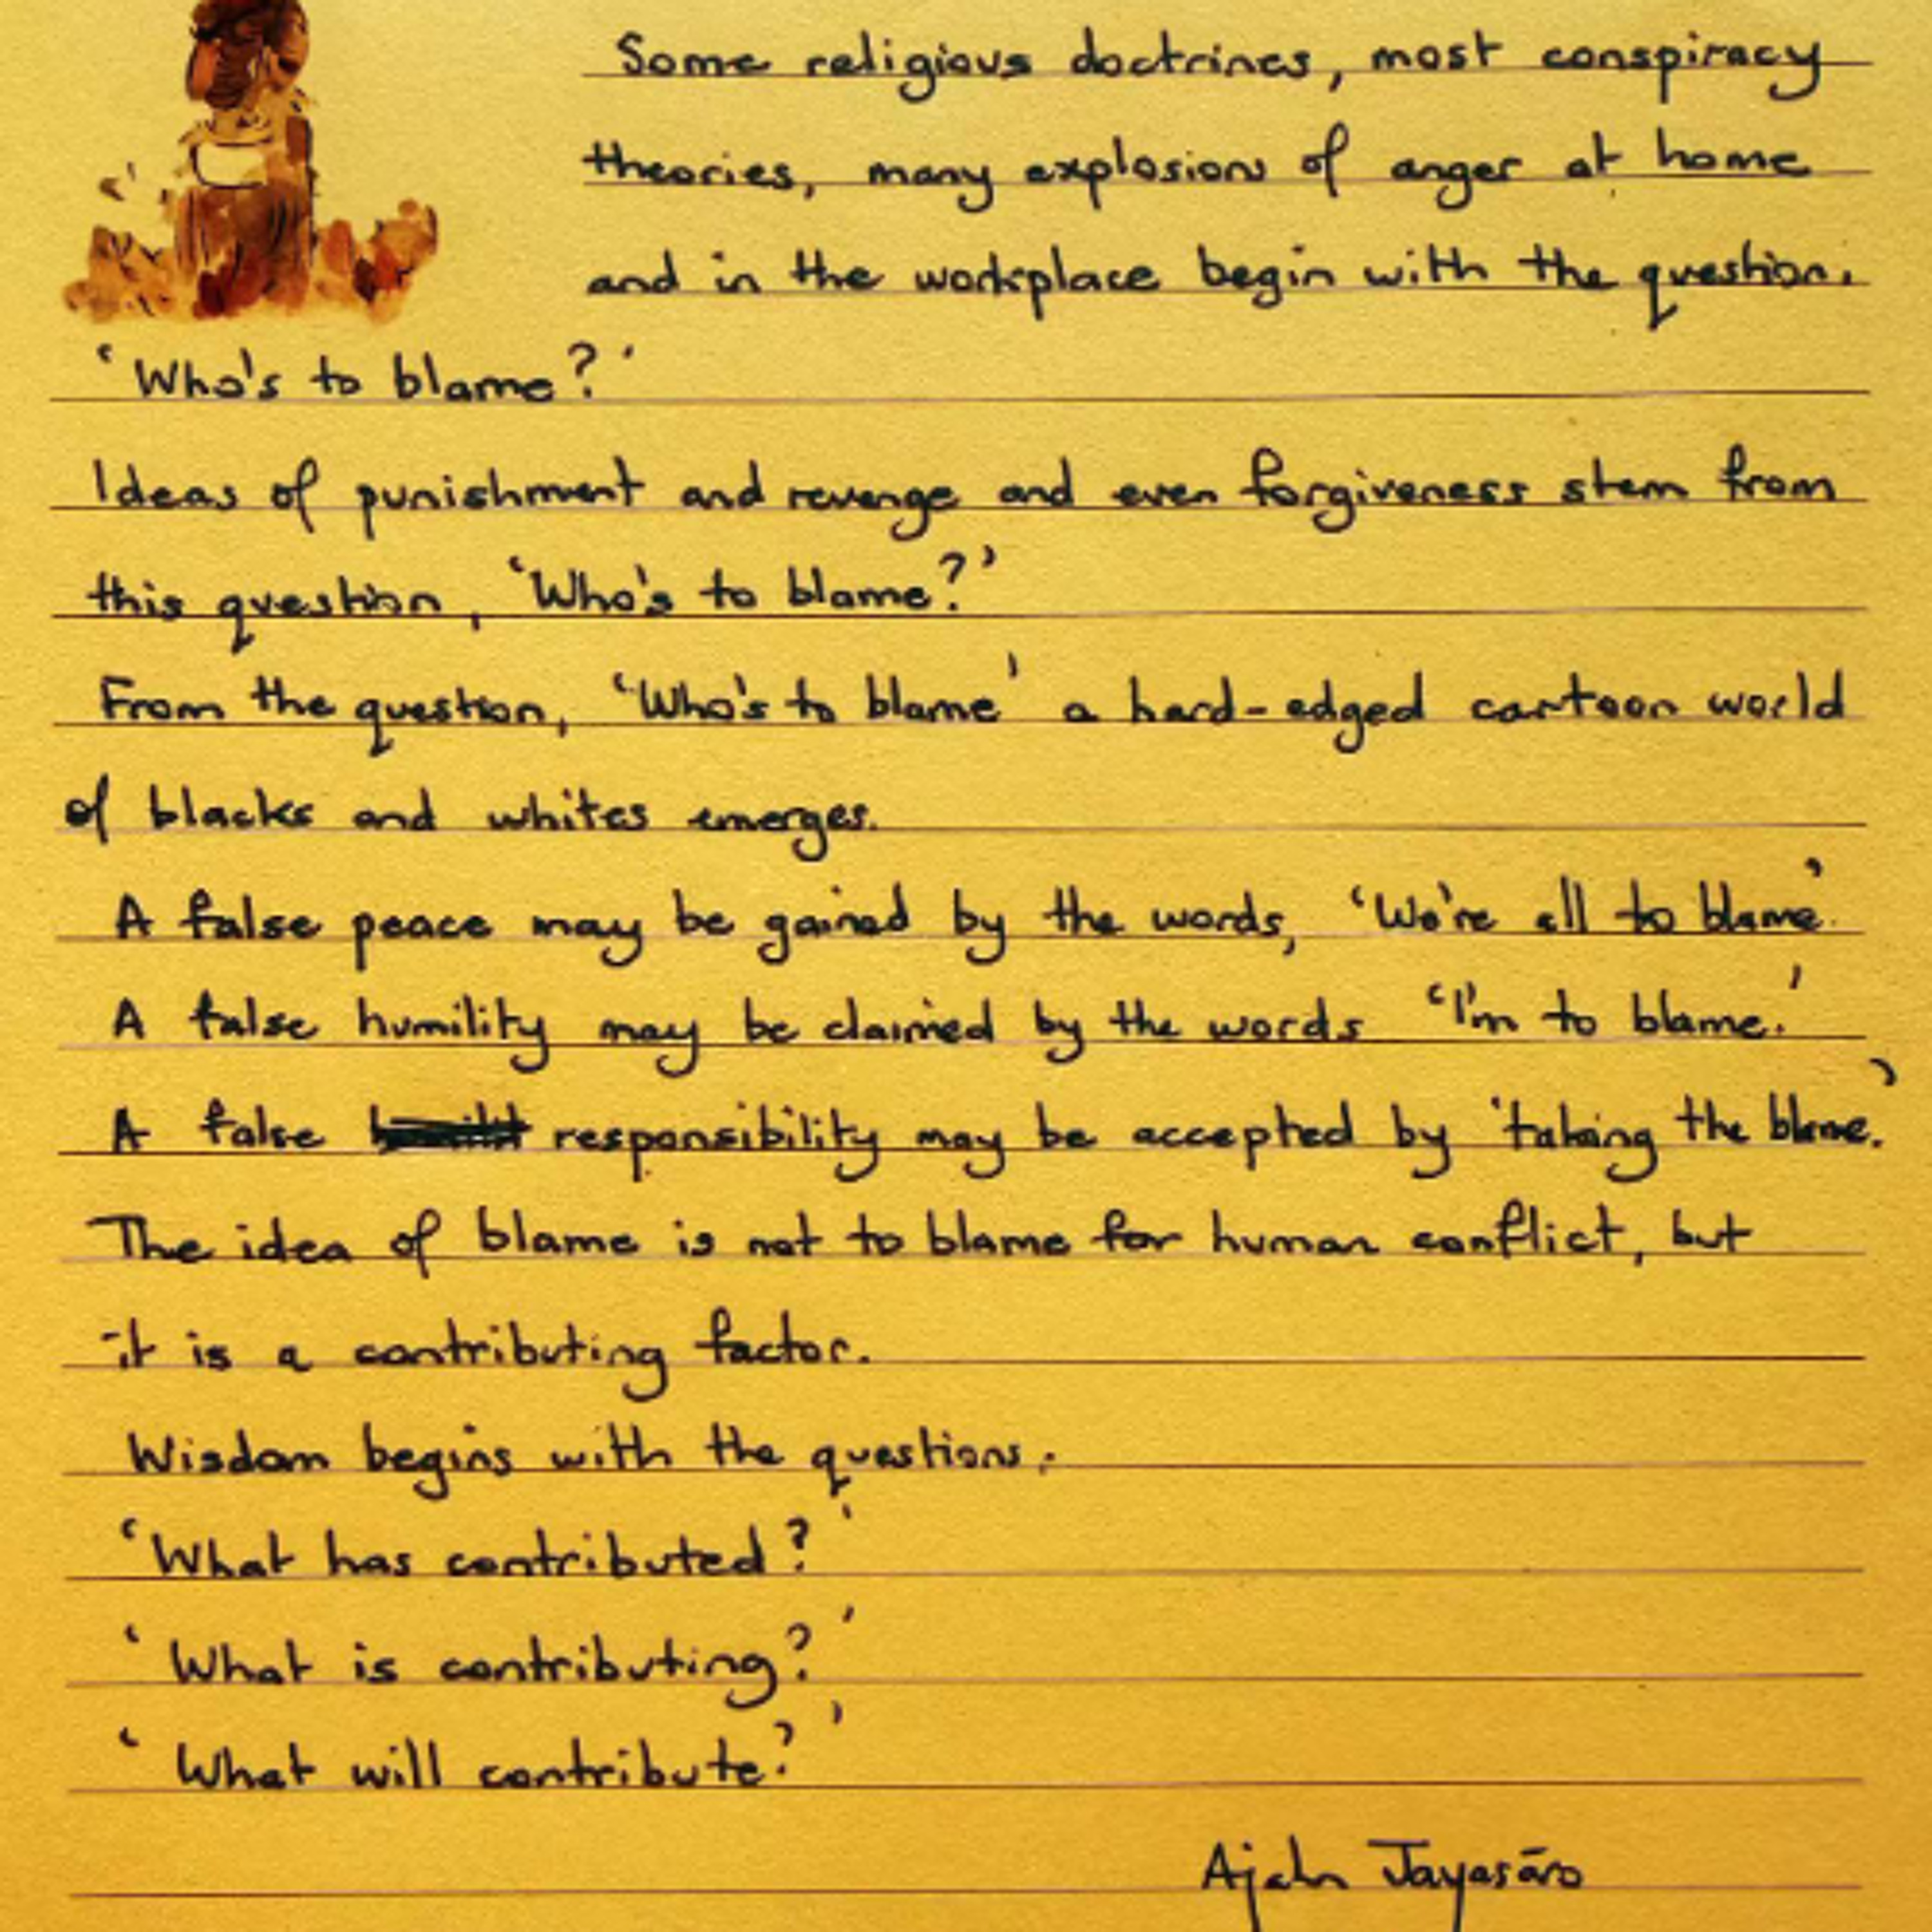 Some religious doctrines, most conspiracy
theories, many explosions of anger at home
and in the workplace begin with the question.
'Who's to blame?'
Ideas of punishment and revenge and even forgiveness stem from
this question, 'Who's to blame?'
From the question, 'Who's to blame' a hard-edged cartoon world
of blacks and whites emerges.
A false peace may be gained by the words, 'We're all to blame.'
A false humility may be claimed by the words 'I'm to blame.'
A false responsibility may be accepted by 'taking the blame.'
The idea of blame is not to blame for human conflict, but
it is a contributing factor.
Wisdom begins with the questions.
'What has contributed?'
'What is contributing?'
'What will contribute?'
Ajahn Jayasāro